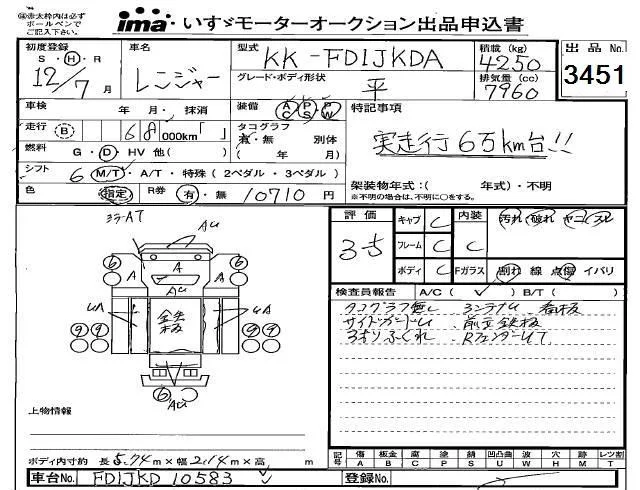 ㊟赤太枠内は必ず
ボールペンで
ご記入下さい。
ima いすゞモーターオークション出品申込書
初度登録 S・H・R 12/7月
車名 レンジャー
型式 KK-FD1JKDA
積載(kg) 4250
出品No. 3451
グレード・ボディ形状 平
排気量(cc) 7960
車検 年 月・抹消
装備 AC PS PW
特記事項
走行 B 68 000km「 」
タコグラフ 有・無 別体
( 年 月)
実走行6万km台!!
燃料 G・D・HV 他( )
シフト 6 M/T・A/T・特殊(2ペダル・3ペダル)
架装物年式:( 年式)・不明
※不明の場合は、不明に○をする。
色 指定 R券 有・無 10710円
評価 3-5
キャブ C
内装 C
汚れ・破れ・ヤニ・スル
フレーム C
ボディ C
Fガラス 割れ 線 点傷 イバリ
ミラーAT
AU
6 A 6
A A
AU
UA 鉄板 UA
9 9 9 9
6 AU
検査員報告 A/C( ✓ ) B/T( )
タコグラフ無し ミラーAU 看板
サイドガードU 前立鉄板
RフェンダーUT
上物情報
ボディ内寸約 長5.74m×幅2.14m×高 m
記号 傷 A 板金 B 腐 C 塗 P 錆 S 凹凸曲 U 波 W 穴 H 跡 M レツ割 T
車台No. FD1JKD 10583
登録No.